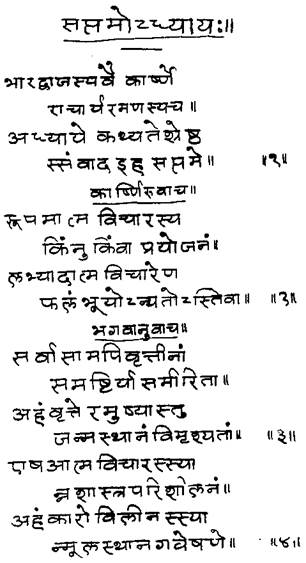 सप्तमोऽध्यायः॥
भारद्वाजस्यवै कार्ष्णे
राचार्यरमणस्यच॥
अध्याये कथ्यतेश्रेष्ठ
स्संवाद इह सप्तमे॥ ॥१॥
कार्ष्णिरुवाच॥
रूपमात्म विचारस्य
किंनु किंवा प्रयोजनं॥
लभ्यादात्म विचारेण
फलं भूयोऽन्यतोऽस्तिवा॥ ॥२॥
भगवानुवाच॥
सर्वासामपिवृत्तीनां
समष्टिर्या समीरिता॥
अहंवृत्ते रमुष्यास्तु
जन्मस्थानं विमृश्यतां॥ ॥३॥
एष आत्म विचारस्स्या
न्नशास्त्रपरिशीलनं॥
अहंकारो विलीन स्स्या
न्मूलस्थान गवेषणे॥ ॥४॥